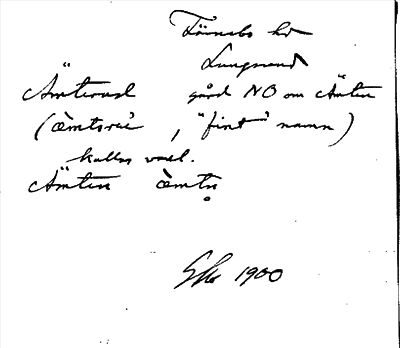 Färnebo hd
Lungsund
Ämterud gård NO om Ämten
(æ̀mtərú, "fint" namn)
kallas vanl.
Ämten æ̀mtn̥
1900